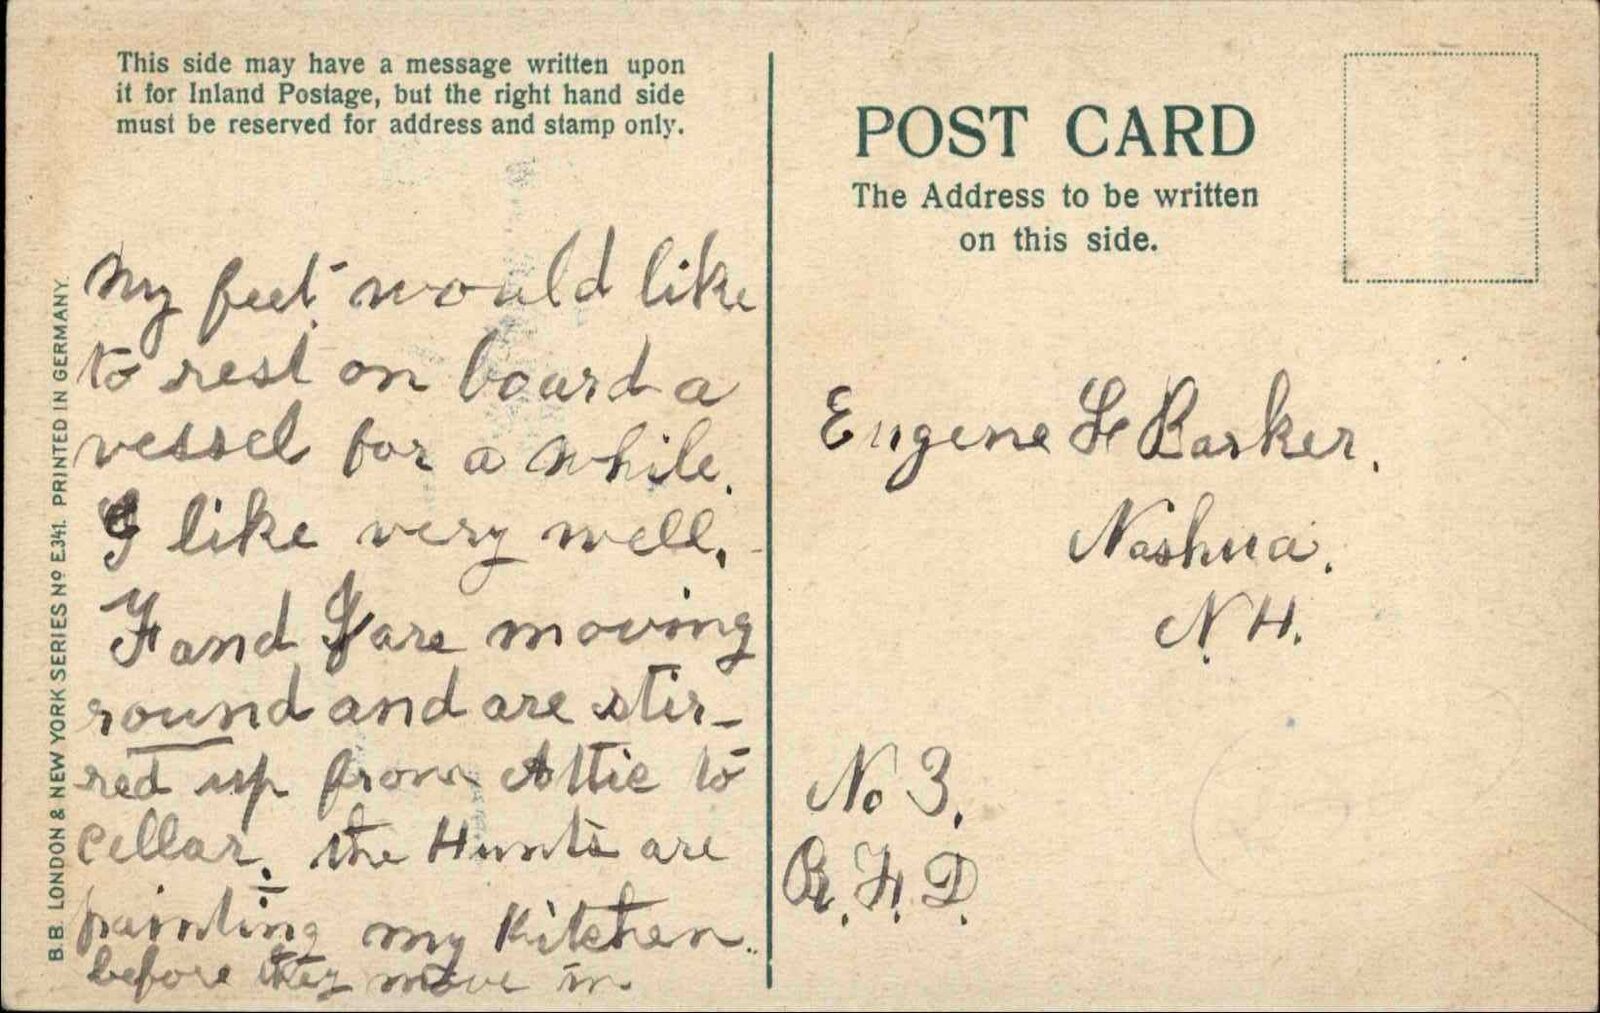 This side may have a message written upon
it for Inland Postage, but the right hand side
must be reserved for address and stamp only.
My feet would like
to rest on board a
vessel for a while.
I like very well.
F and I are moving
round and are stir-
red up from Attic to
cellar. the Hunts are
painting my Kitchen
before they move in.
B.B. LONDON & NEW YORK SERIES No E341. PRINTED IN GERMANY.
POST CARD
The Address to be written
on this side.
Eugene Le Barker.
Nashua.
N.H.
No 3.
R.F.D.